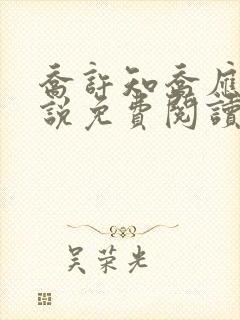 喬許知喬雁
說免費閱讀
吴荣光